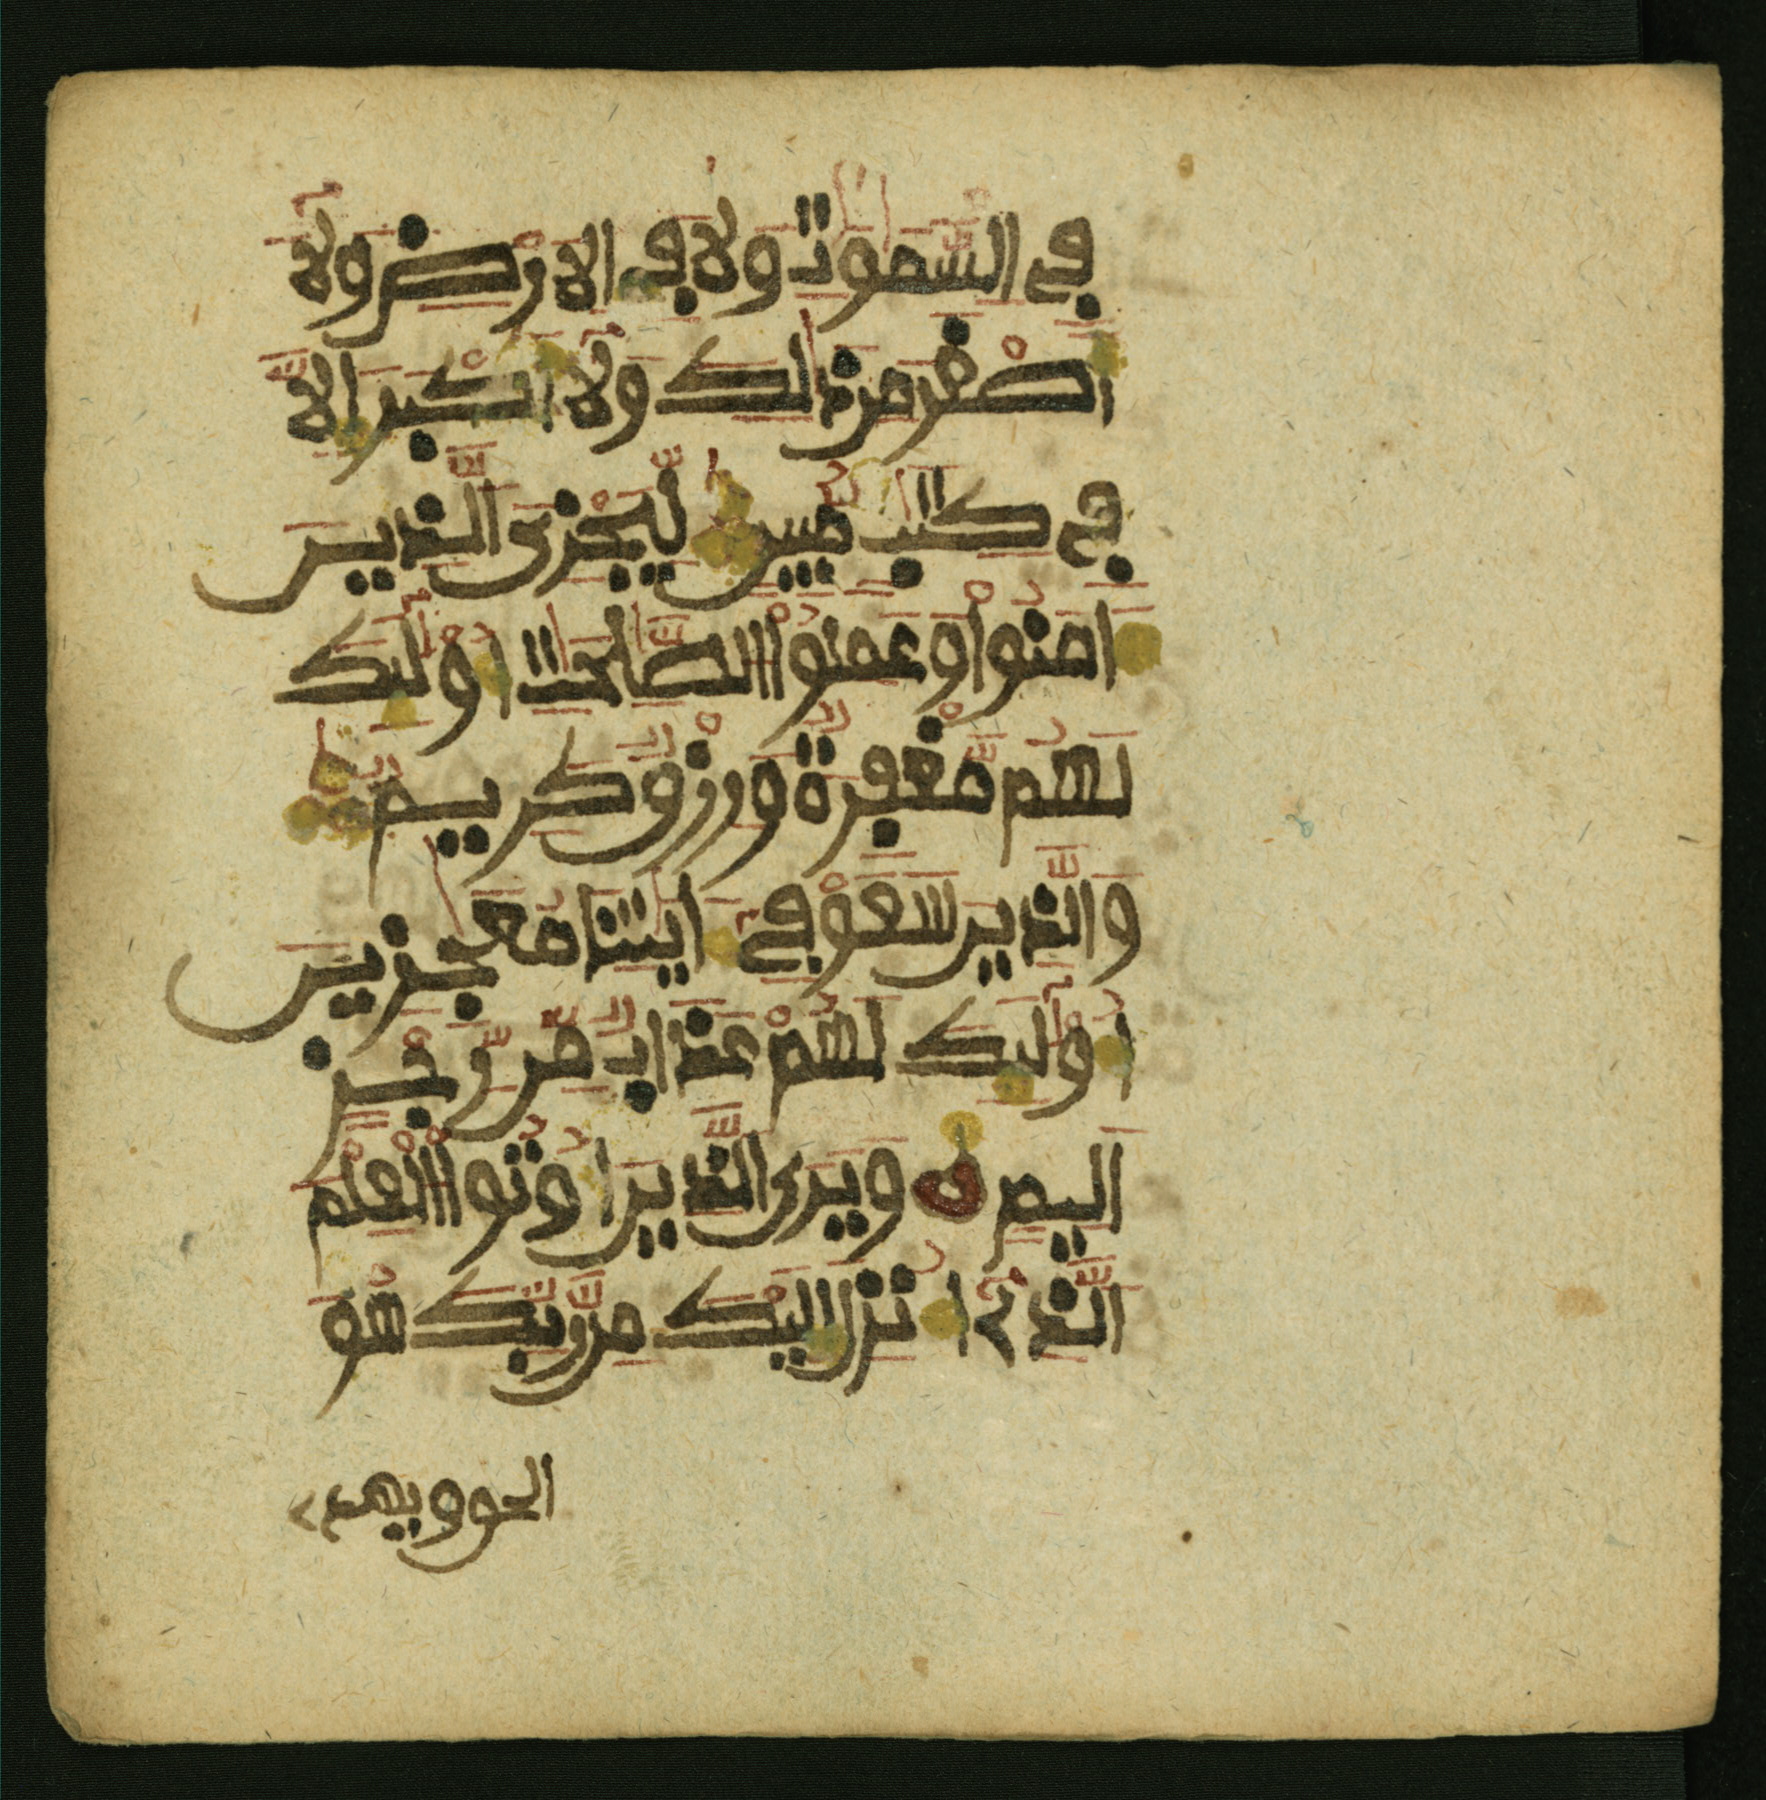 في السموت ولا في الارض ولا
اصغر من ذالك ولا اكبر الا
في كتاب مبين ليجزي الذين
امنوا وعملوا الصالحات اوليك
لهم مغفرة ورزق كريم
والذين سعو في ايتنا معجزين
اوليك لهم عذاب من رجز
اليم ويرى الذين اوتوا العلم
الذي انزل اليك من ربك هو
الحق ويهدي